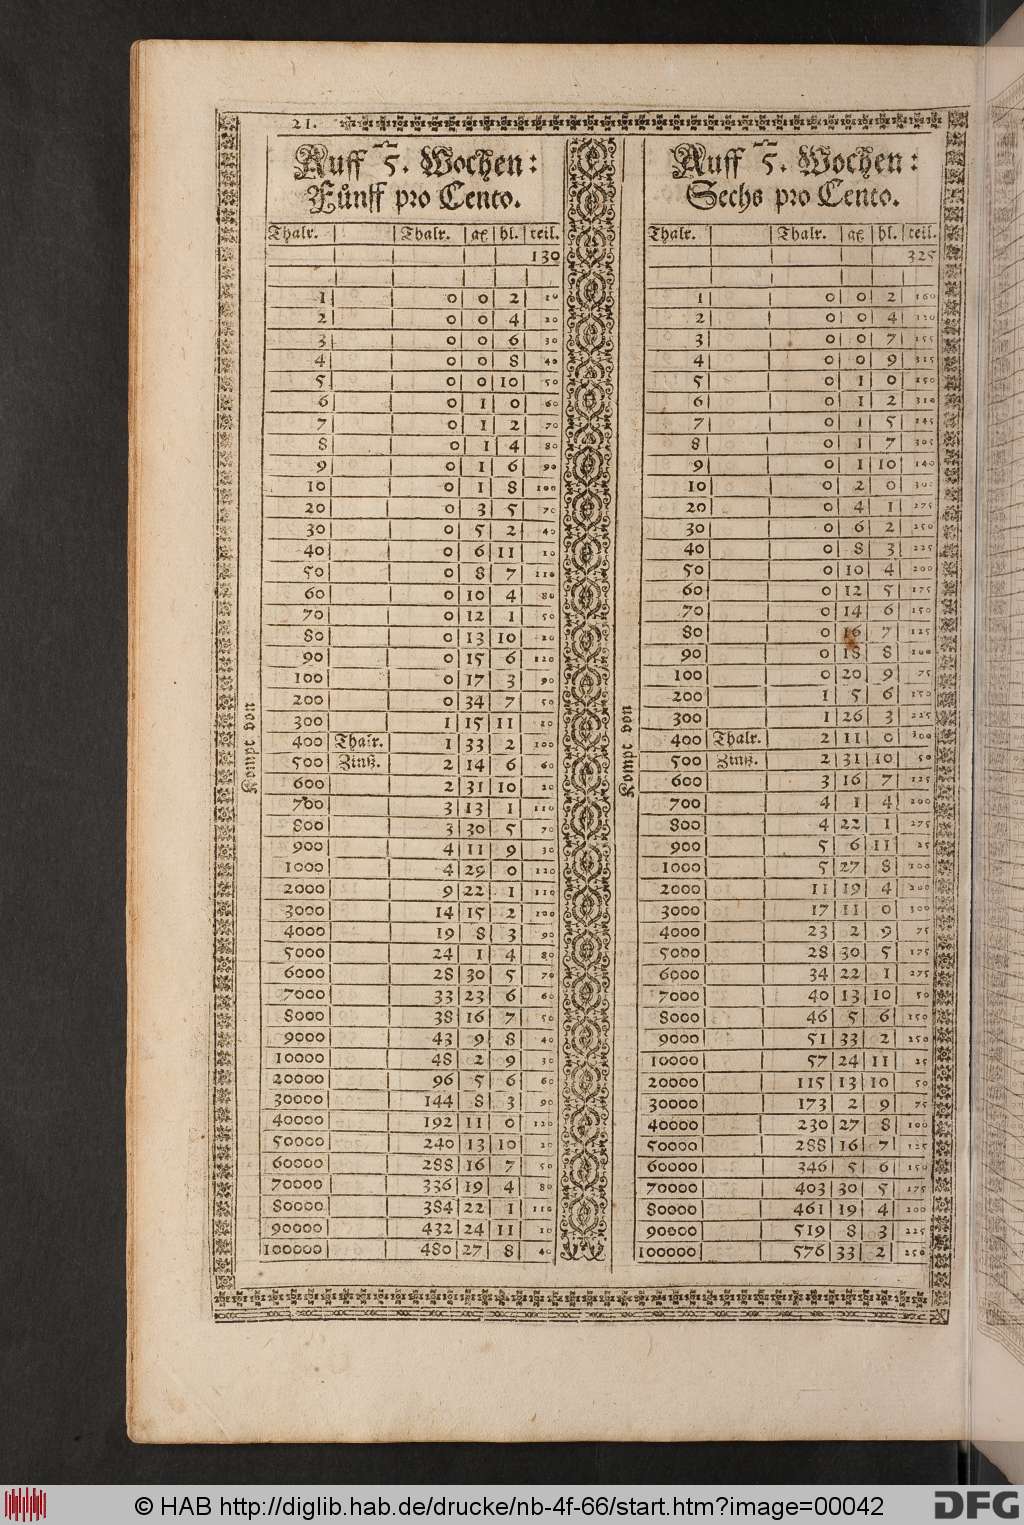 21.
Auff 5. Wochen:
Fůnff pro Cento.
Thalr. | | Thalr. | gℓ | hl. | teil.
130
1 | | 0 | 0 | 2 | 10
2 | | 0 | 0 | 4 | 20
3 | | 0 | 0 | 6 | 30
4 | | 0 | 0 | 8 | 40
5 | | 0 | 0 | 10 | 50
6 | | 0 | 1 | 0 | 60
7 | | 0 | 1 | 2 | 70
8 | | 0 | 1 | 4 | 80
9 | | 0 | 1 | 6 | 90
10 | | 0 | 1 | 8 | 100
20 | | 0 | 3 | 5 | 70
30 | | 0 | 5 | 2 | 40
40 | | 0 | 6 | 11 | 10
50 | | 0 | 8 | 7 | 110
60 | | 0 | 10 | 4 | 80
70 | | 0 | 12 | 1 | 50
80 | | 0 | 13 | 10 | 20
90 | | 0 | 15 | 6 | 120
100 | | 0 | 17 | 3 | 90
200 | | 0 | 34 | 7 | 50
300 | | 1 | 15 | 11 | 10
400 | Thalr. | 1 | 33 | 2 | 100
500 | Zinß. | 2 | 14 | 6 | 60
600 | | 2 | 31 | 10 | 20
700 | | 3 | 13 | 1 | 110
800 | | 3 | 30 | 5 | 70
900 | | 4 | 11 | 9 | 30
1000 | | 4 | 29 | 0 | 120
2000 | | 9 | 22 | 1 | 110
3000 | | 14 | 15 | 2 | 100
4000 | | 19 | 8 | 3 | 90
5000 | | 24 | 1 | 4 | 80
6000 | | 28 | 30 | 5 | 70
7000 | | 33 | 23 | 6 | 60
8000 | | 38 | 16 | 7 | 50
9000 | | 43 | 9 | 8 | 40
10000 | | 48 | 2 | 9 | 30
20000 | | 96 | 5 | 6 | 60
30000 | | 144 | 8 | 3 | 90
40000 | | 192 | 11 | 0 | 120
50000 | | 240 | 13 | 10 | 20
60000 | | 288 | 16 | 7 | 50
70000 | | 336 | 19 | 4 | 80
80000 | | 384 | 22 | 1 | 110
90000 | | 432 | 24 | 11 | 10
100000 | | 480 | 27 | 8 | 40
Kompt von
Auff 5. Wochen:
Sechs pro Cento.
Thalr. | | Thalr. | gℓ | hl. | teil.
325
1 | | 0 | 0 | 2 | 160
2 | | 0 | 0 | 4 | 320
3 | | 0 | 0 | 7 | 155
4 | | 0 | 0 | 9 | 315
5 | | 0 | 1 | 0 | 150
6 | | 0 | 1 | 2 | 310
7 | | 0 | 1 | 5 | 145
8 | | 0 | 1 | 7 | 305
9 | | 0 | 1 | 10 | 140
10 | | 0 | 2 | 0 | 300
20 | | 0 | 4 | 1 | 275
30 | | 0 | 6 | 2 | 250
40 | | 0 | 8 | 3 | 225
50 | | 0 | 10 | 4 | 200
60 | | 0 | 12 | 5 | 175
70 | | 0 | 14 | 6 | 150
80 | | 0 | 16 | 7 | 125
90 | | 0 | 18 | 8 | 100
100 | | 0 | 20 | 9 | 75
200 | | 1 | 5 | 6 | 150
300 | | 1 | 26 | 3 | 225
400 | Thalr. | 2 | 11 | 0 | 300
500 | Zinß. | 2 | 31 | 10 | 50
600 | | 3 | 16 | 7 | 125
700 | | 4 | 1 | 4 | 200
800 | | 4 | 22 | 1 | 275
900 | | 5 | 6 | 11 | 25
1000 | | 5 | 27 | 8 | 100
2000 | | 11 | 19 | 4 | 200
3000 | | 17 | 11 | 0 | 300
4000 | | 23 | 2 | 9 | 75
5000 | | 28 | 30 | 5 | 175
6000 | | 34 | 22 | 1 | 275
7000 | | 40 | 13 | 10 | 50
8000 | | 46 | 5 | 6 | 150
9000 | | 51 | 33 | 2 | 250
10000 | | 57 | 24 | 11 | 25
20000 | | 115 | 13 | 10 | 50
30000 | | 173 | 2 | 9 | 75
40000 | | 230 | 27 | 8 | 100
50000 | | 288 | 16 | 7 | 125
60000 | | 346 | 5 | 6 | 150
70000 | | 403 | 30 | 5 | 175
80000 | | 461 | 19 | 4 | 200
90000 | | 519 | 8 | 3 | 225
100000 | | 576 | 33 | 2 | 250
Kompt von
© HAB http://diglib.hab.de/drucke/nb-4f-66/start.htm?image=00042
DFG